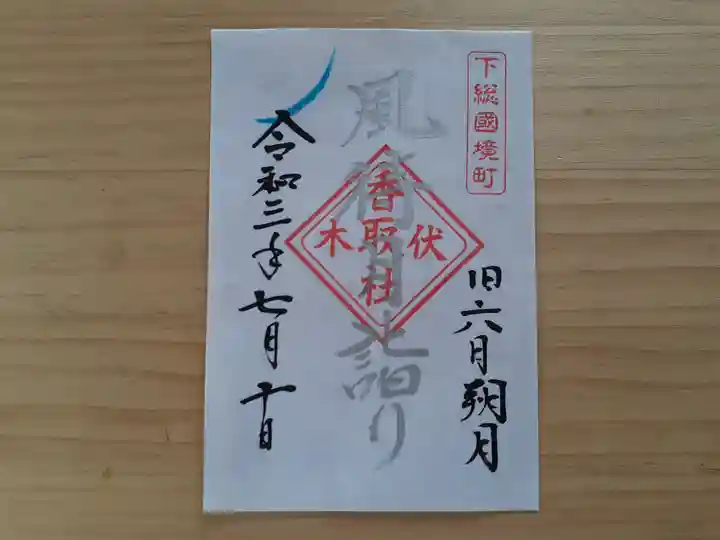 下総國境町
旧六月朔月
風待月詣り
伏木
香取社
令和三年七月十日